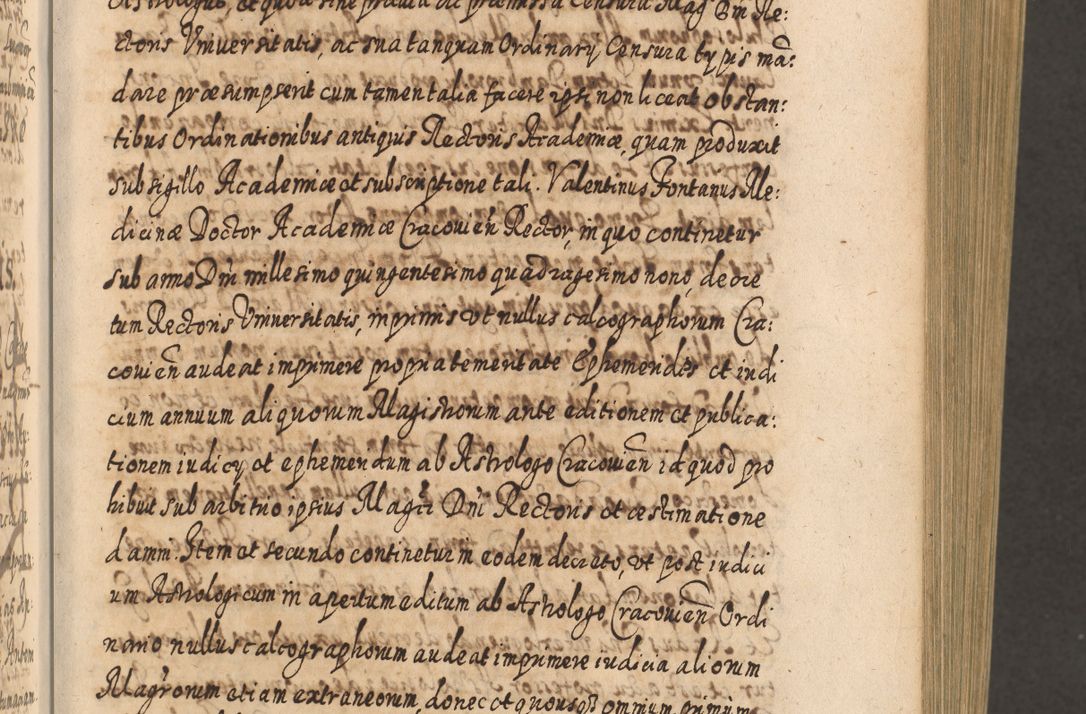 Astrologus, et quod sine praevia ac praemissa Censura Mag Dm̃ Re:
ctoris Universitatis, ac sua tanquam Ordinarÿ Censura typis mã:
dare præsumpserit cum tamen talia facere ipsi non liceat obstan:
tibus Ordinationibus antiquis Rectoris Academiæ, quam produxit
sub sigillo Academiæ et subscriptione tali. Valentinus Fontanus Me:
dicinæ Doctor Academiæ Cracovieñ Rector, in quo continetur
sub anno Dñi millesimo quingentesimo quadragesimo nono, decre
tum Rectoris Universitatis, inprimis vt nullus calcographorum Cra:
covieñ audeat imprimere propria temeritate Ephemerides et iudi
cium annuum aliquorum Magistrorum ante editionem et publica:
tionem iudicÿ et ephemeridum ab Astrologo Cracovieñ id quod pro
hibuit sub arbitrio ipsius Magci Dñi Rectoris et æstimatione
damni. Item et secundo continetur in eodem decreto, vt post iudici
um Astrologicum in apertum editum ab Astrologo Cracovieñ Ordi
nario nullus calcographorum audeat imprimere iudicia aliorum
Magrorum etiam extraneorum, donec et quousq3 omnium primum